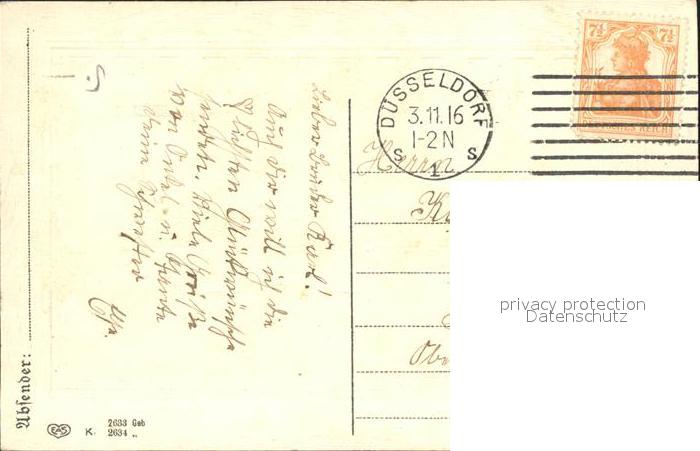 Absender:
Lieber Bruder Karl!
Auch Dir will ich die
Glückwünsche
senden. Viele Grüße
von Onkel u. Tante
Deine Schwester
Elsa.
EAS
K. 2633 Geb
2634 „
DÜSSELDORF
3.11.16
1-2 N
S 1 S
7½ 7½
DEUTSCHES REICH
Herrn
K
Ob
privacy protection
Datenschutz